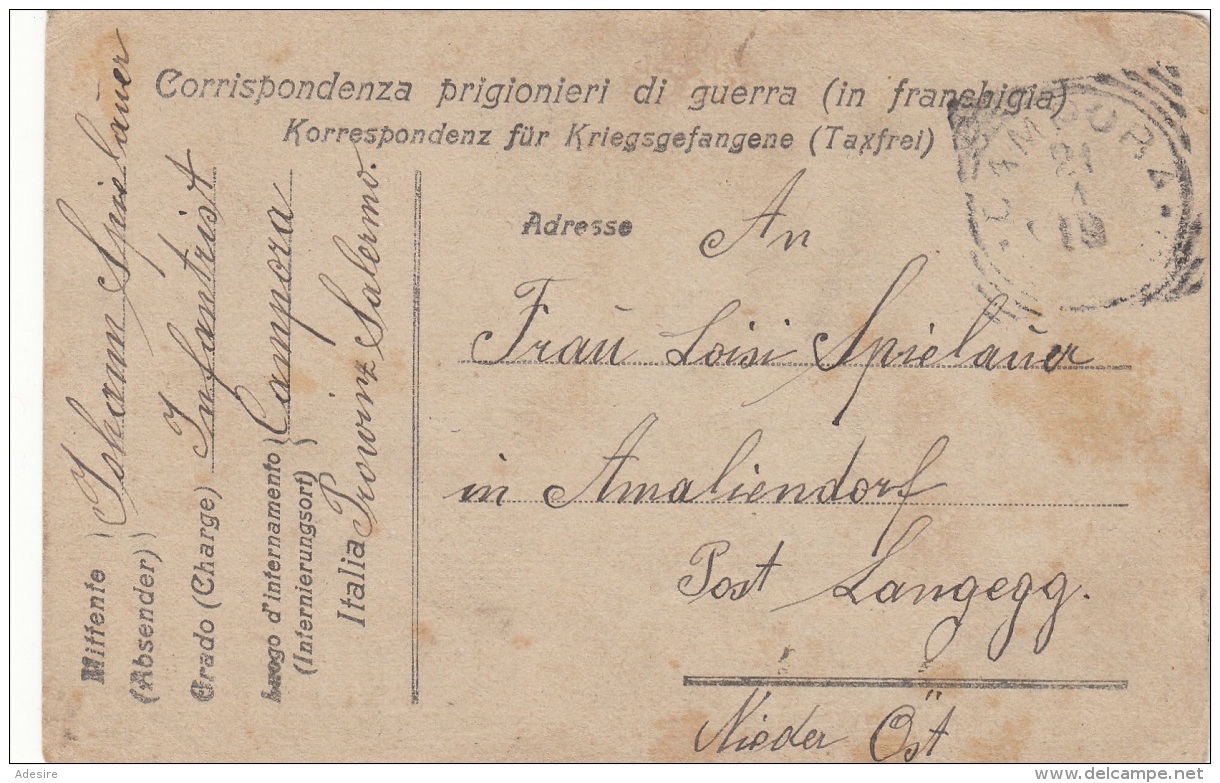 Corrispondenza prigionieri di guerra (in franchigia)
Korrespondenz für Kriegsgefangene (Taxfrei)
CAMPORA
21
1
19
Adresse
An
Frau Loisi Spielauer
in Amaliendorf
Post Langegg.
Nieder Öst
Mittente
(Absender)
Johann Spielauer
Grado (Charge) Infantrist
Luogo d'internamento
(Internierungsort)
Campora
Italia Provinz Salermo.
Adesire
www.delcampe.net